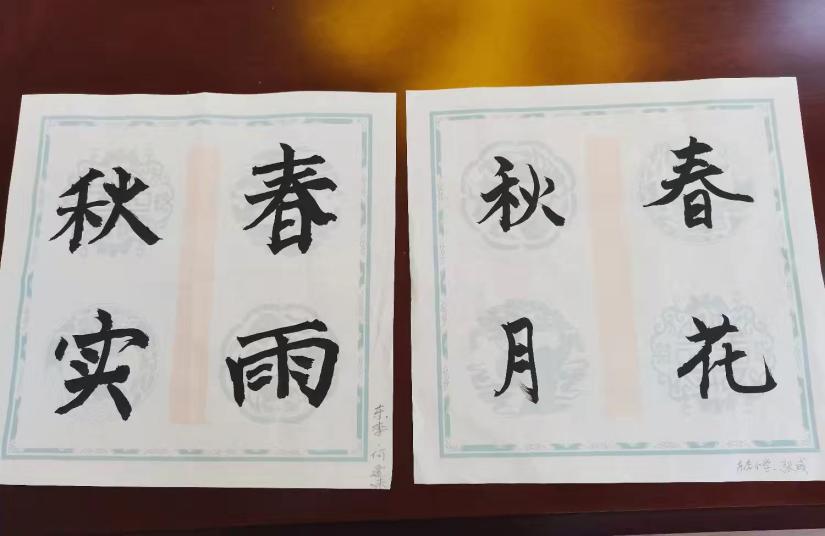 春雨
秋实
东李·何
春花
秋月
小学·张成